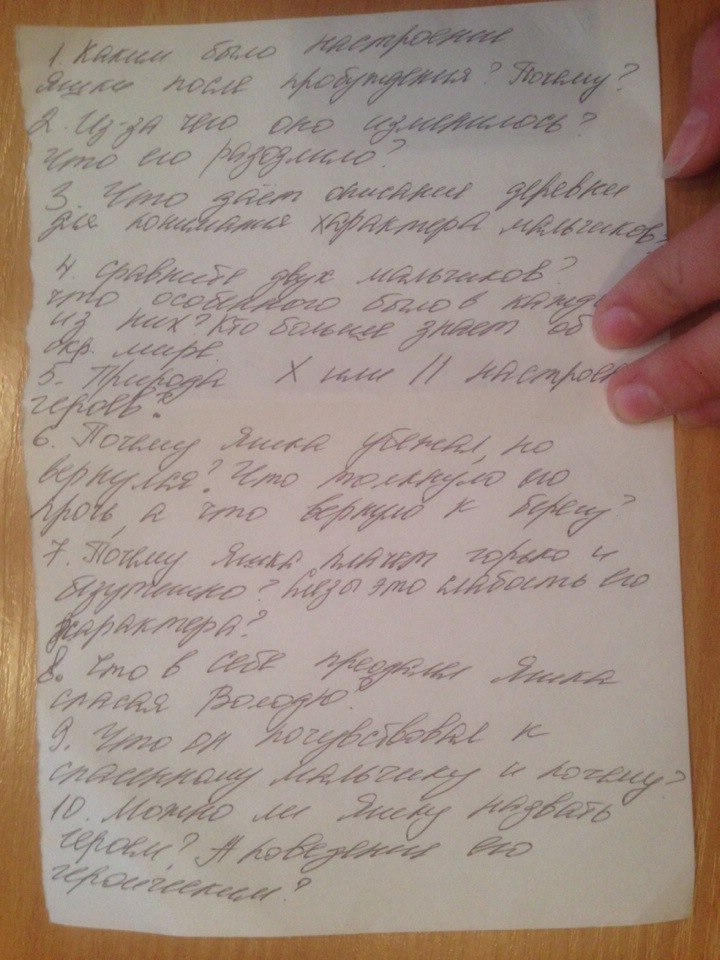 1. Каким было настроение
Яшки после пробуждения? Почему?
2. Из-за чего оно изменилось?
Что его разозлило?
3. Что даёт описание деревни
для понимания характера мальчиков?
4. Сравните двух мальчиков?
что особенного было в кажд
из них? Кто больше знает об
окр. мире.
5. Природа X или || настрое
героев?
6. Почему Яшка убежал, но
вернулся? Что толкнуло его
прочь, а что вернуло к берегу?
7. Почему Яшка плачет горько и
безутешно? Слезы это слабость его
характера?
8. Что в себе преодолел Яшка
спасая Володю?
9. Что он почувствовал к
спасенному мальчику и почему?
10. Можно ли Яшку назвать
героем? А поведение его
героическим?